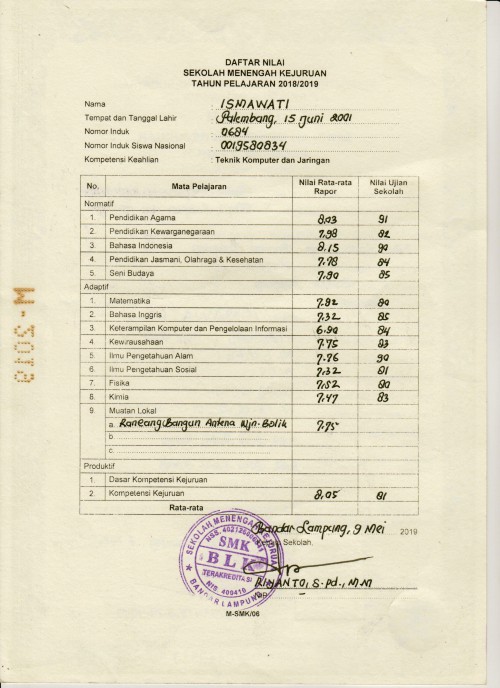 DAFTAR NILAI
SEKOLAH MENENGAH KEJURUAN
TAHUN PELAJARAN 2018/2019
Nama : ISMAWATI
Tempat dan Tanggal Lahir : Palembang, 15 Juni 2001
Nomor Induk : 0684
Nomor Induk Siswa Nasional : 0019580834
Kompetensi Keahlian : Teknik Komputer dan Jaringan
No. Mata Pelajaran Nilai Rata-rata Rapor Nilai Ujian Sekolah
Normatif
1. Pendidikan Agama 8,03 91
2. Pendidikan Kewarganegaraan 7,98 82
3. Bahasa Indonesia 8,15 90
4. Pendidikan Jasmani, Olahraga & Kesehatan 7,78 84
5. Seni Budaya 7,90 85
Adaptif
1. Matematika 7,82 80
2. Bahasa Inggris 7,32 85
3. Keterampilan Komputer dan Pengelolaan Informasi 6,90 84
4. Kewirausahaan 7,75 83
5. Ilmu Pengetahuan Alam 7,76 90
6. Ilmu Pengetahuan Sosial 7,32 81
7. Fisika 7,52 80
8. Kimia 7,47 83
9. Muatan Lokal
a. Rancang Bangun Antena Wjn-Bolik 7,75
b.
c.
Produktif
1. Dasar Kompetensi Kejuruan
2. Kompetensi Kejuruan 8,05 81
Rata-rata
Bandar Lampung, 9 Mei 2019
Sekolah,
SEKOLAH MENENGAH KEJURUAN
SMK
BLK
TERAKREDITASI
BANDAR LAMPUNG
RIYANTO, S.Pd., M.M
M-SMK/06